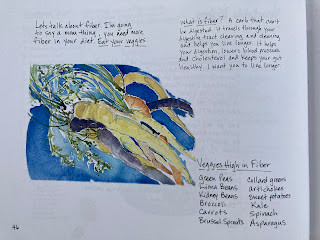 Lets talk about fiber. I'm going
to say a mom thing, you need more
fiber in your diet. Eat your veggies
What is fiber? A carb that can't
be digested. It travels through your
digestive tract cleaning and clearing
and helps you live longer. It helps
your digestion, lowers blood pressure
and cholesterol and keeps your gut
healthy. I want you to live longer.
Veggies High in Fiber
Green Peas
Lima Beans
Kidney Beans
Broccoli
Carrots
Brussel Sprouts
Collard greens
artichokes
sweet potatoes
Kale
Spinach
Asparagus
46